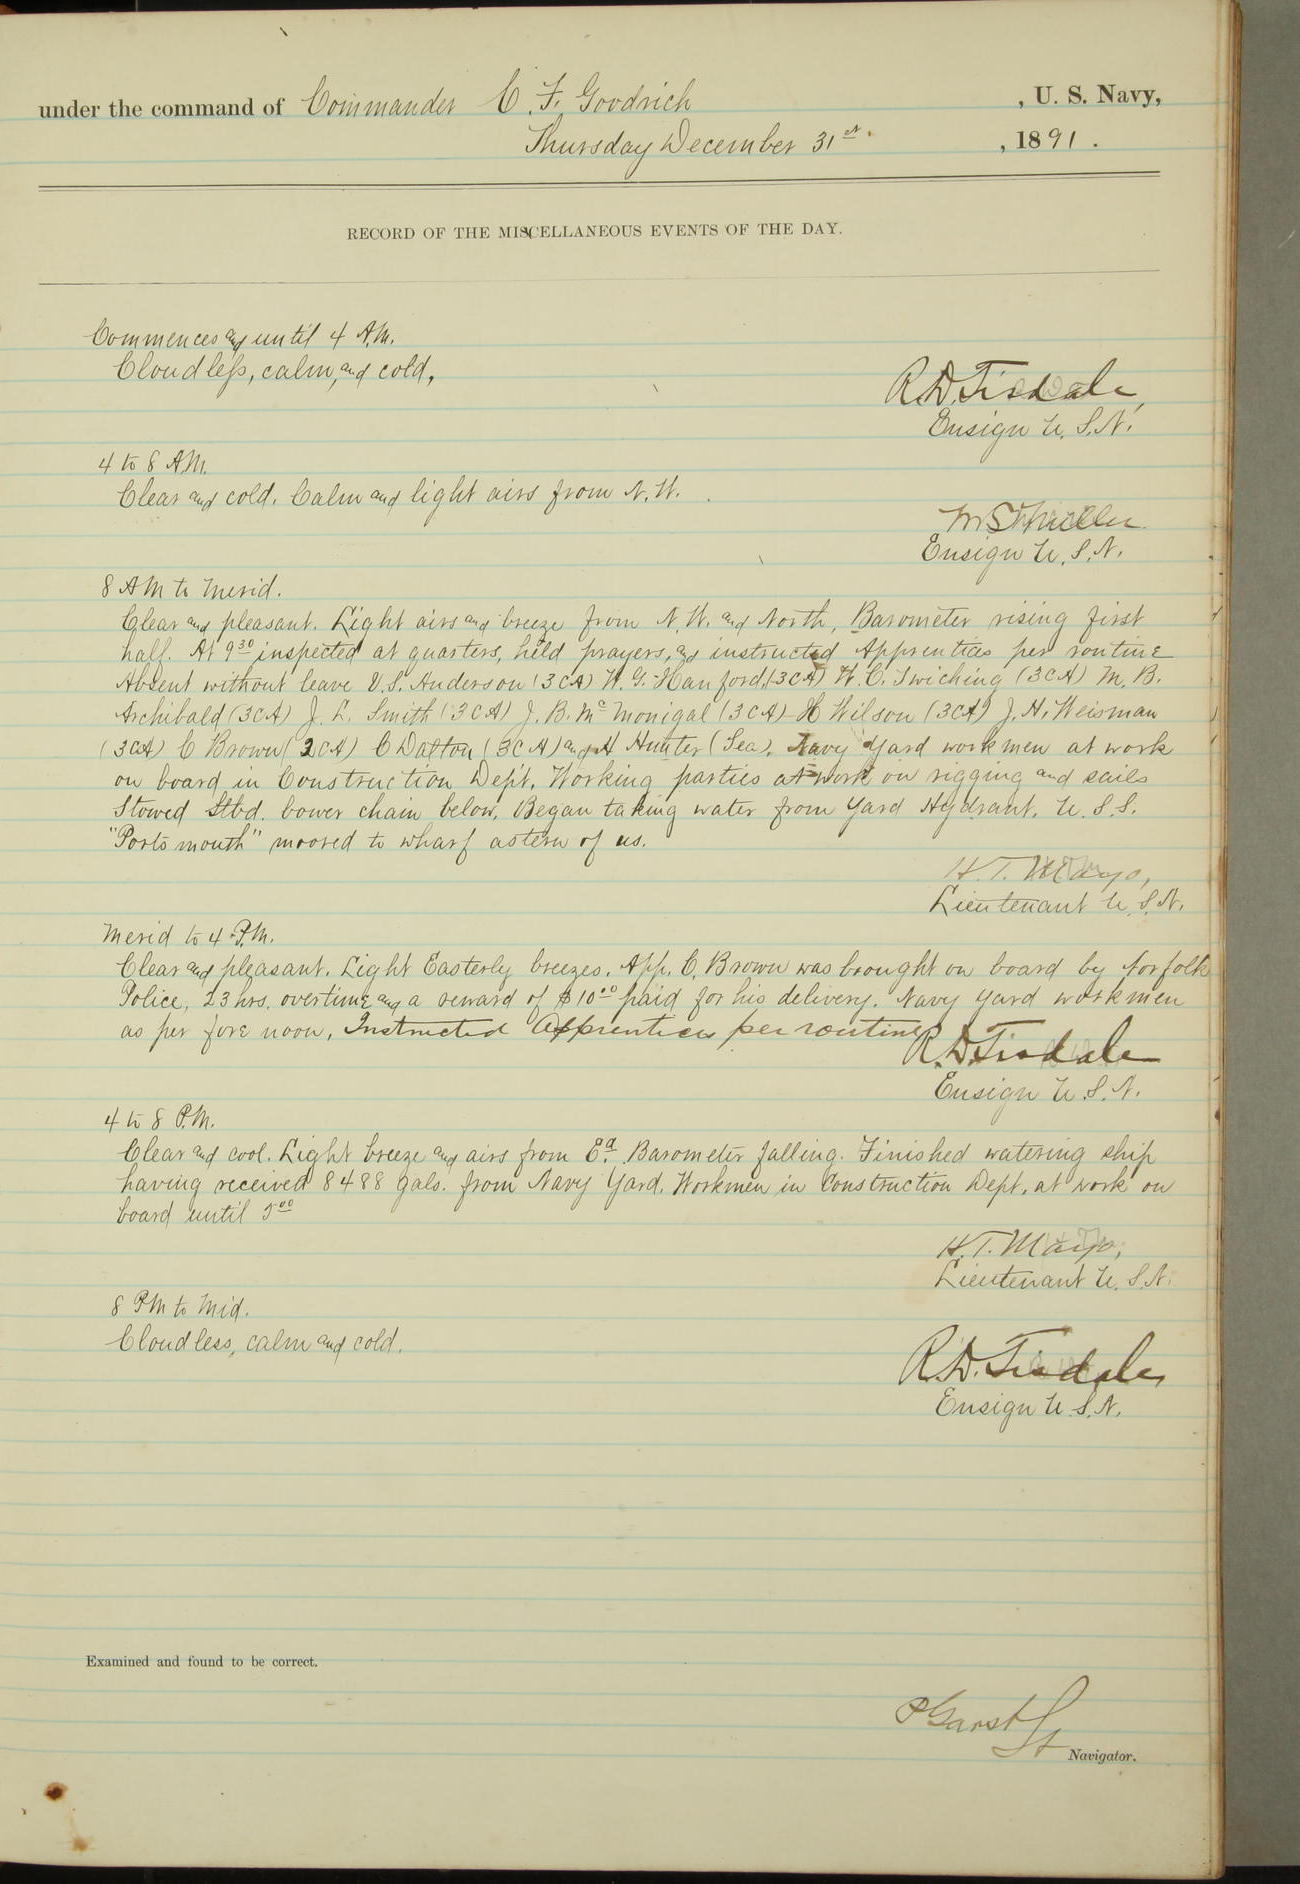 under the command of Commander C. F. Goodrich , U. S. Navy,
Thursday December 31st. , 1891.
RECORD OF THE MISCELLANEOUS EVENTS OF THE DAY.
Commences and until 4 A.M.
Cloudless, calm, and cold.
R.D. Tisdale,
Ensign U.S.N.
4 to 8 A.M.
Clear and cold. Calm and light airs from N.W.
Ensign U.S.N.
8 AM to Merid.
Clear and pleasant. Light airs and breeze from N.W. and North, Barometer rising first
half. At 9 30 inspected at quarters, held prayers, and instructed Apprentices per routine
Absent without leave V.S. Anderson (3CA) W.G. Hanford (3CA) W.C. Twiching (3CA) M.B.
Archibald (3CA) J. L. Smith (3CA) J.B. McMonigal (3CA) H Wilson (3CA) J.H. Weisman
(3CA) C Brown (2CA) C Dalton (3CA) and H Hunter (Sea). Navy Yard workmen at work
on board in Construction Dep't. Working parties at work on rigging and sails
Stowed Stbd. bower chain below. Began taking water from Yard Hydrant. U.S.S.
"Portsmouth" moored to wharf astern of us.
H.T. Mayo,
Lieutenant U.S.N.
Merid to 4 P.M.
Clear and pleasant. Light Easterly breezes. App. C. Brown was brought on board by Norfolk
Police, 23 hrs. overtime and a reward of $10 00 paid for his delivery. Navy Yard workmen
as per fore noon. Instructed Apprentices per routine
R.D. Tisdale
Ensign U.S.N.
4 to 8 P.M.
Clear and cool. Light breeze and airs from Ed. Barometer falling. Finished watering ship
having received 8488 gals. from Navy Yard. Workmen in Construction Dept. at work on
board until 5 00
H.T. Mayo,
Lieutenant U.S.N.
8 PM to Mid.
Cloudless, calm and cold.
R.D. Tisdale,
Ensign U.S.N.
Examined and found to be correct.
P Garst Lt
Navigator.